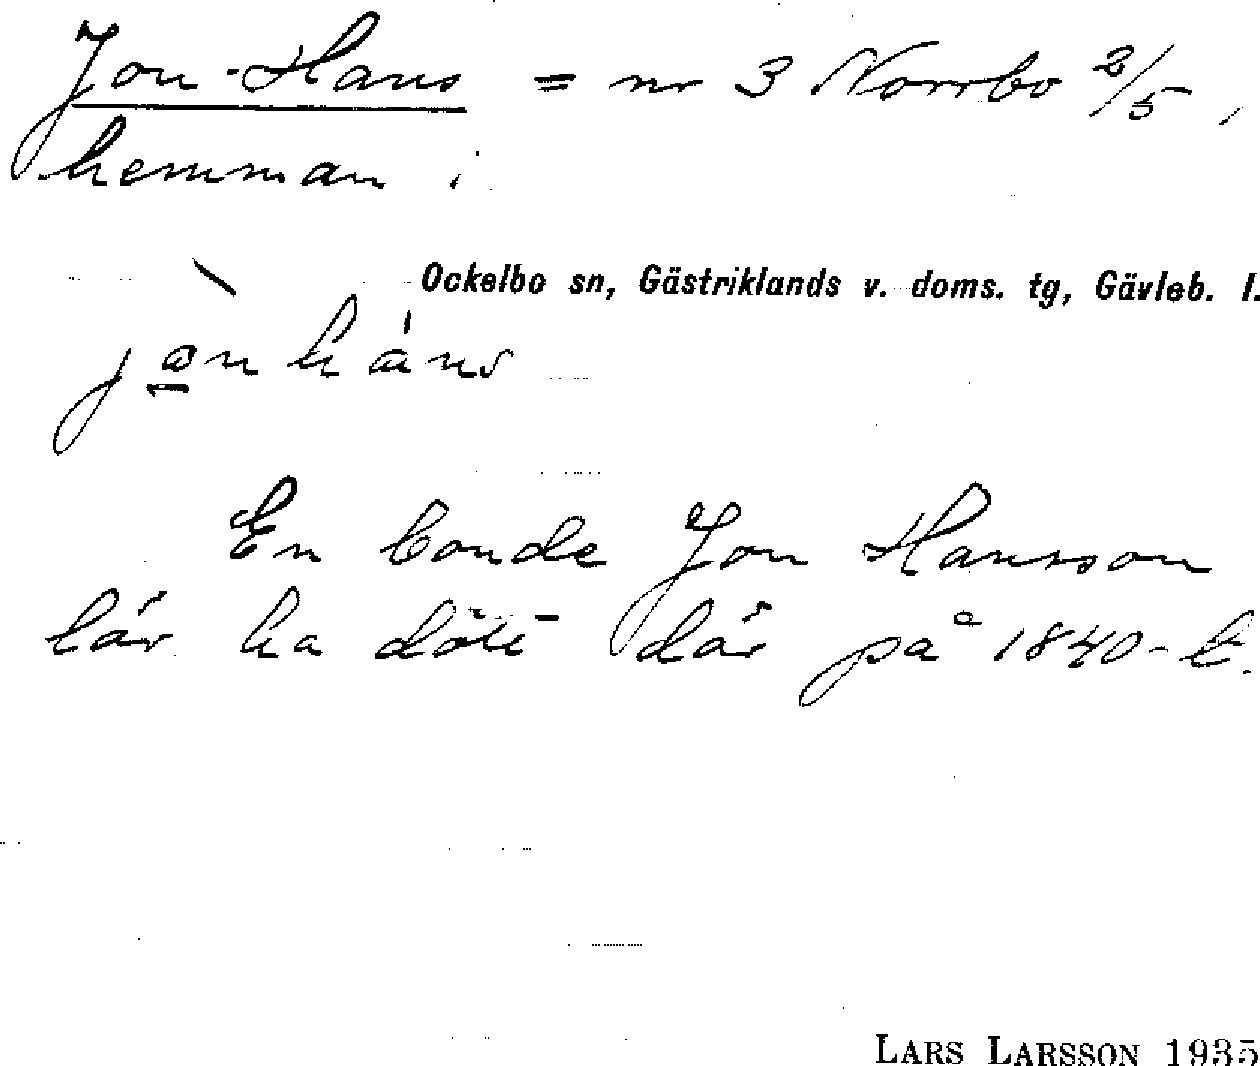 Jon-Hans = nr 3 Norrbo 2/5,
hemman i
Ockelbo sn, Gästriklands v. doms. tg, Gävleb. l.
jò̲nháns
En bonde Jon Hansson
lär ha dött där på 1840-t.
LARS LARSSON 1935